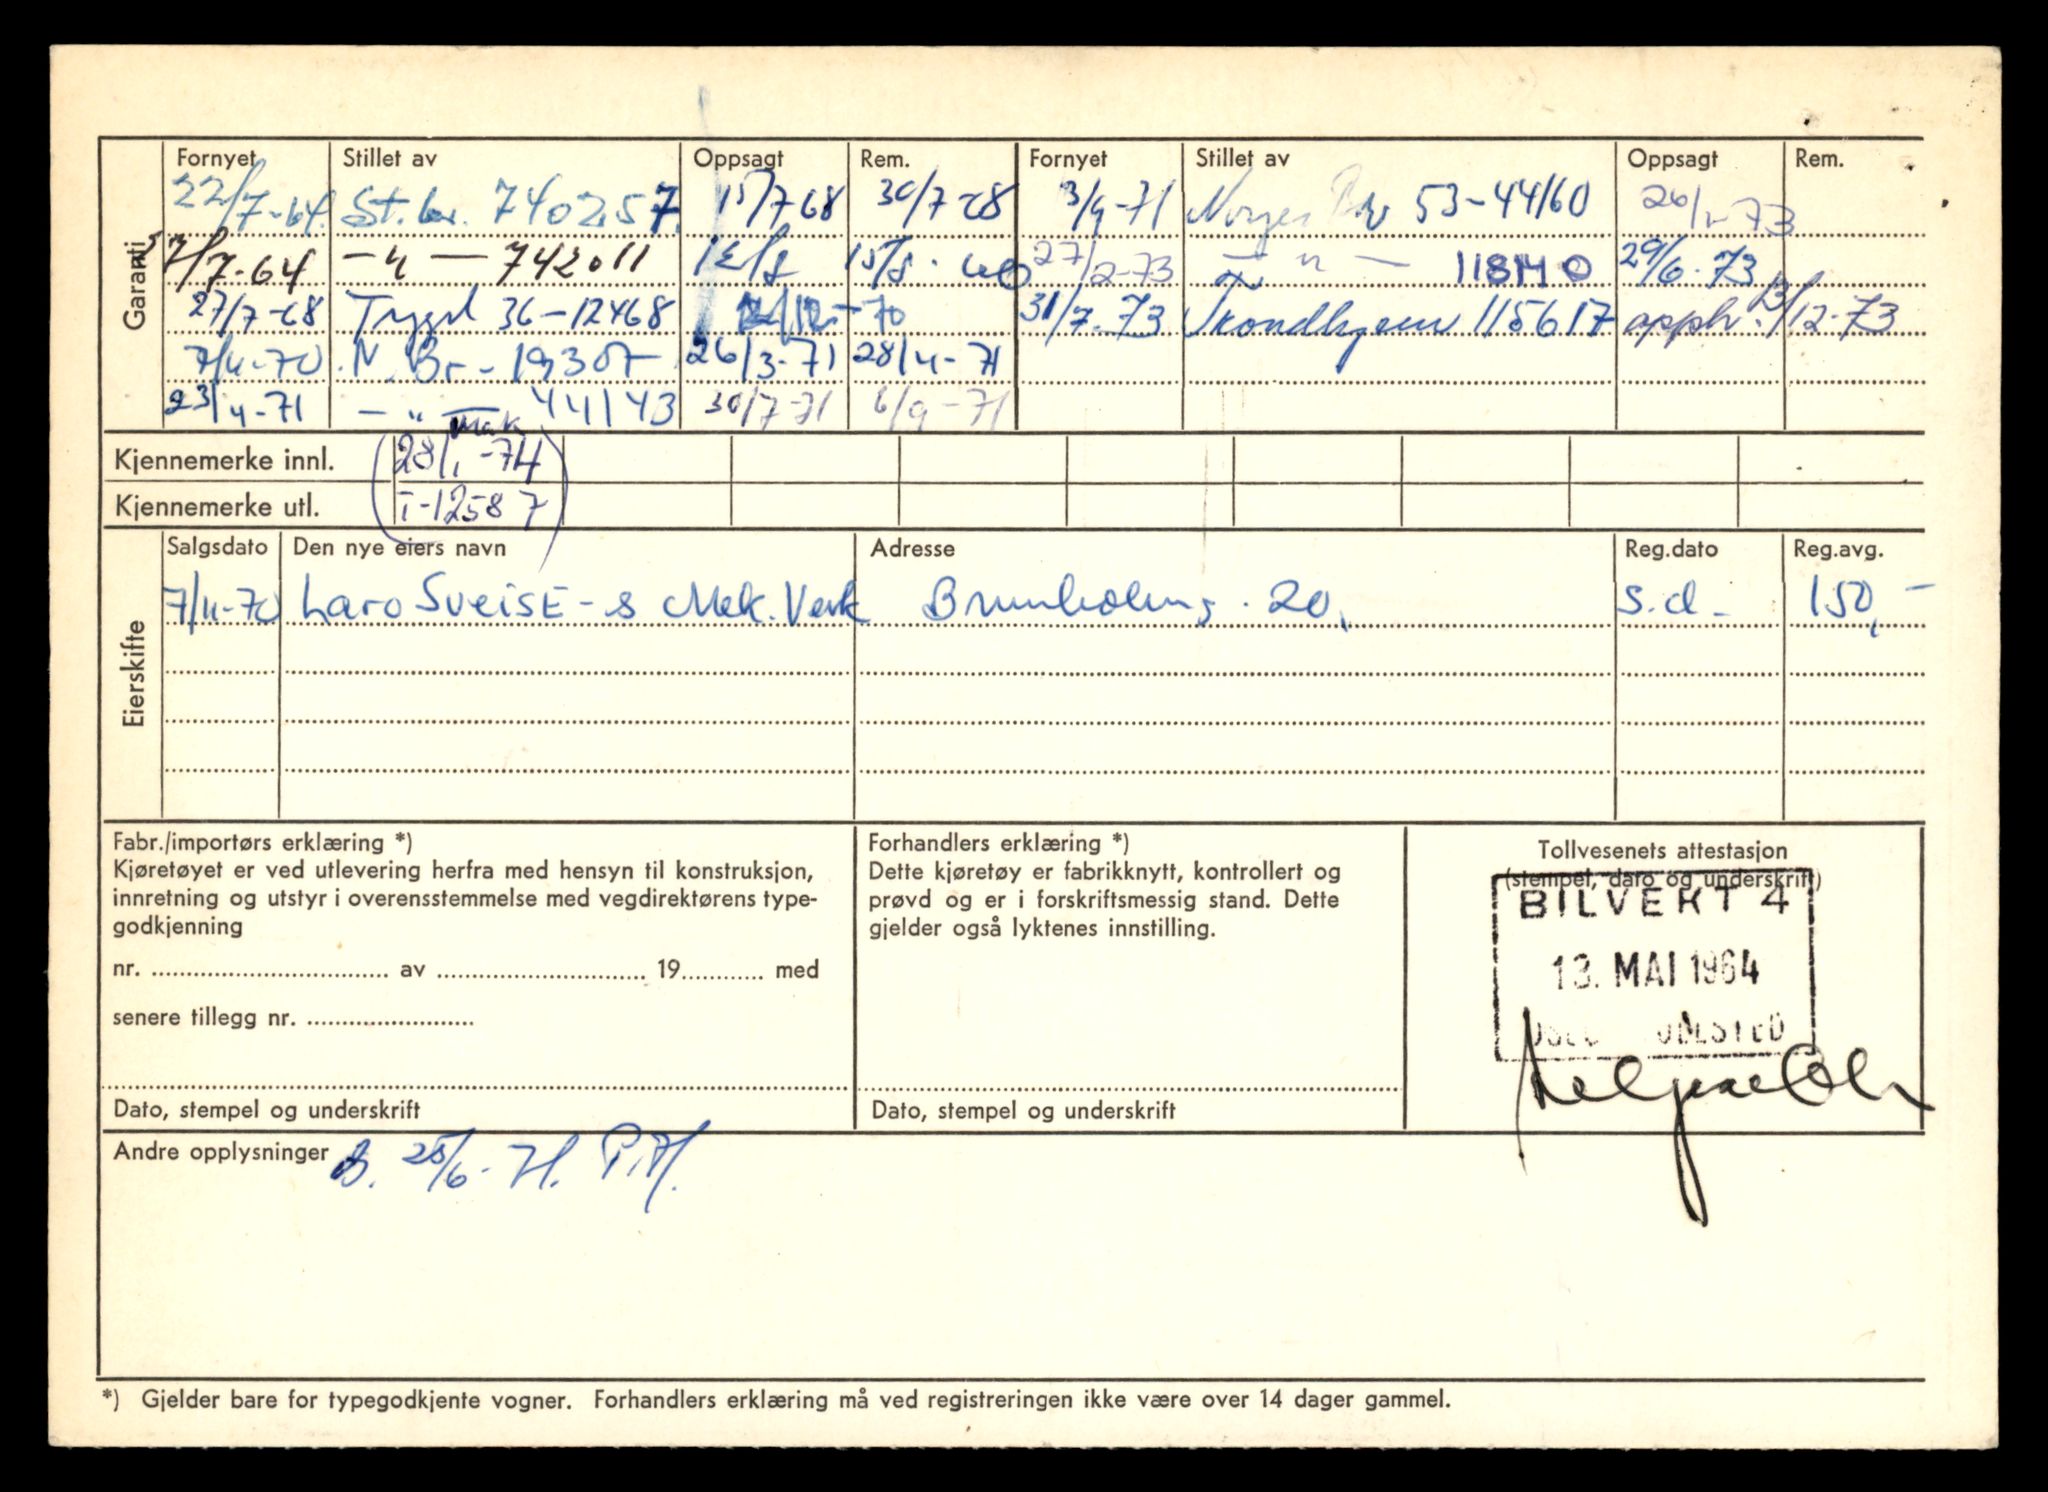 Garanti
Fornyet Stillet av Oppsagt Rem. Fornyet Stillet av Oppsagt Rem.
22/7-64. St.br. 740257. 15/7 68 30/7-68 3/9-71 Norges Br 53-44160 26/1-73
/7-64 -"- 742011 12/8 15/8. 27/2-73 - " - 118140 29/6-73
27/7-68 Trygd 36-12468 /12-70 31/7-73 Trondhjem 115617 opph. 13/12-73
7/11-70 N.Br- 19307 26/3-71 28/4-71
23/4-71 -"- 44143 30/7-71 6/9-71
mak
Kjennemerke innl. (28/1-74
Kjennemerke utl. T-12587)
Eierskifte
Salgsdato Den nye eiers navn Adresse Reg.dato Reg.avg.
7/11-70 Laro Sveise- & Mek. Verk Brunholmg. 20, s.d- 150,-
Fabr./importørs erklæring *)
Kjøretøyet er ved utlevering herfra med hensyn til konstruksjon,
innretning og utstyr i overensstemmelse med vegdirektørens type-
godkjenning
nr. ................ av ................ 19............ med
senere tillegg nr. ................
Dato, stempel og underskrift
Forhandlers erklæring *)
Dette kjøretøy er fabrikknytt, kontrollert og
prøvd og er i forskriftsmessig stand. Dette
gjelder også lyktenes innstilling.
Dato, stempel og underskrift
Tollvesenets attestasjon
(stempel, dato og underskrift)
BILVEKT 4
13. MAI 1964
Andre opplysninger B. 25/6-71.
*) Gjelder bare for typegodkjente vogner. Forhandlers erklæring må ved registreringen ikke være over 14 dager gammel.